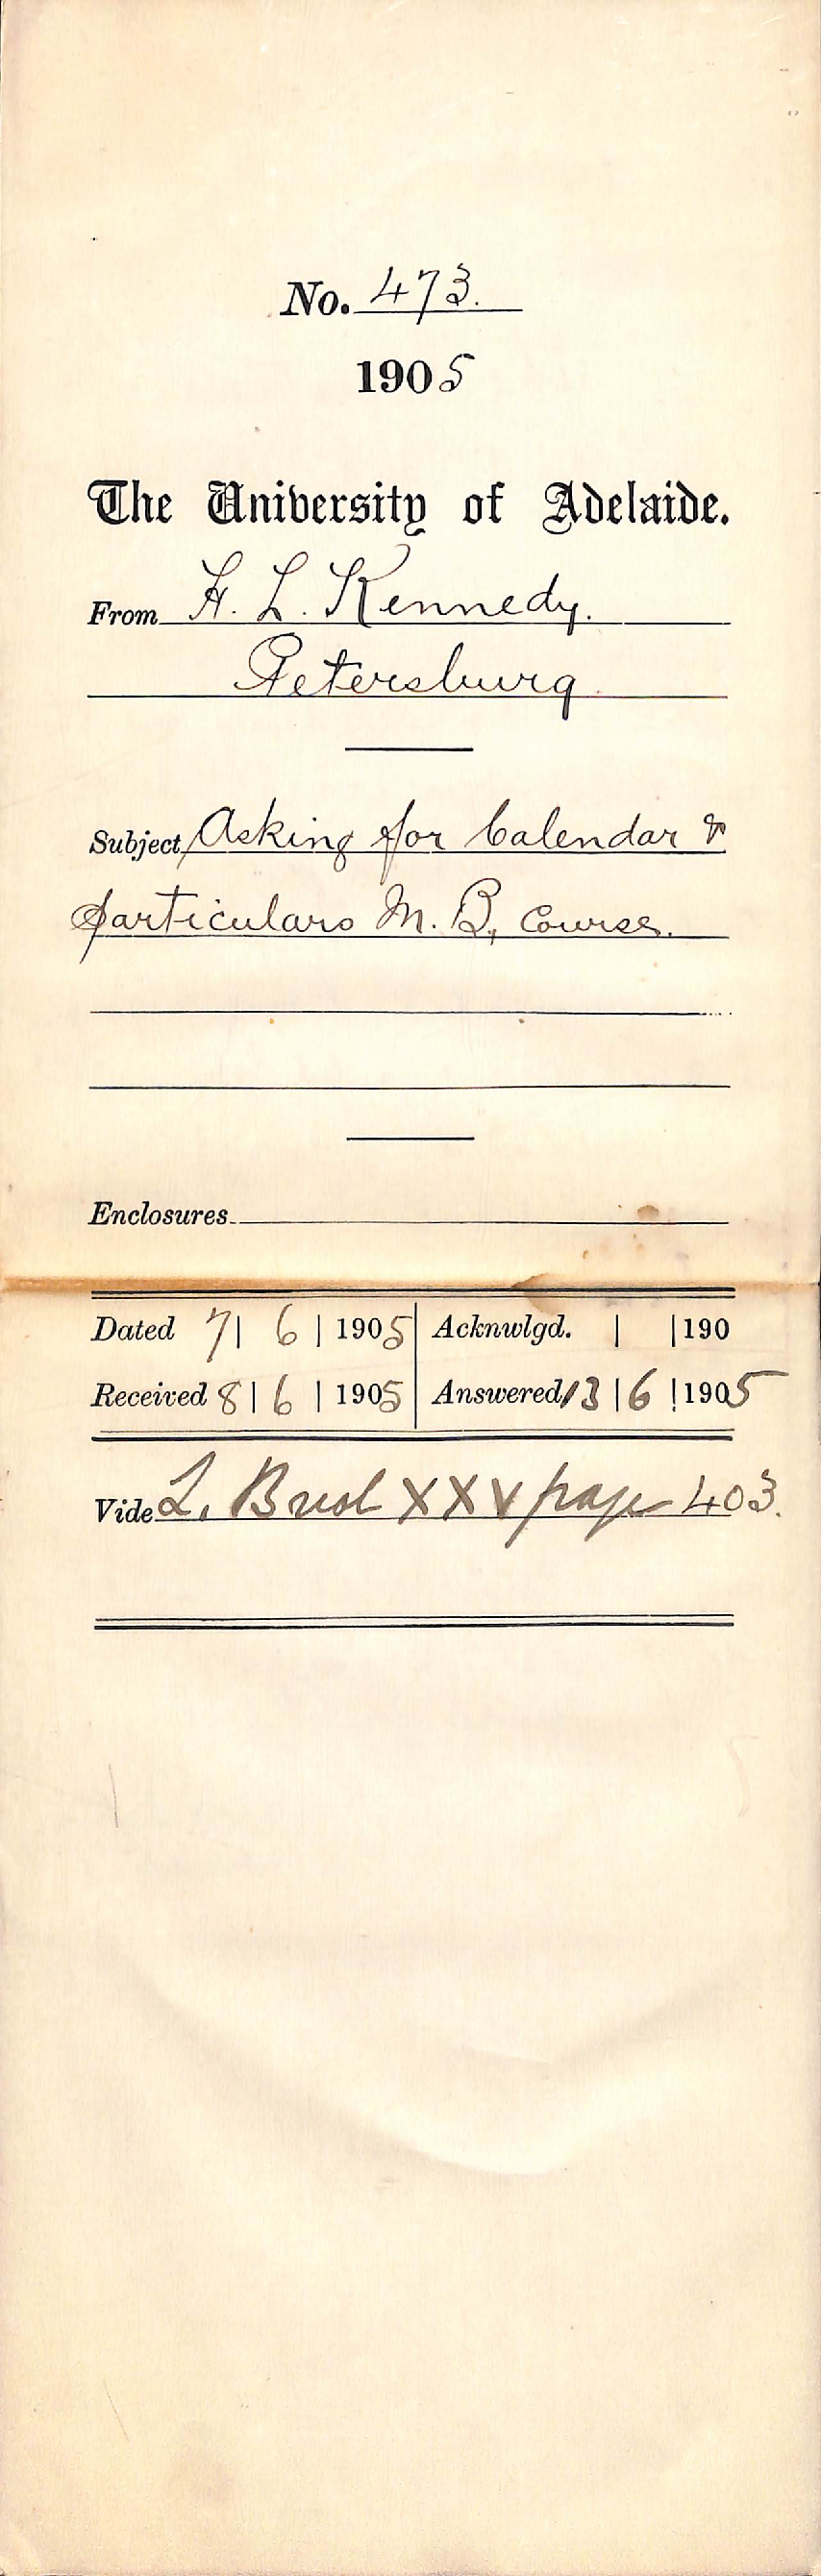 No. 473.
1905
The University of Adelaide.
From H. L. Kennedy.
Petersburg
Subject Asking for Calendar &
particulars M. B, Course.
Enclosures
Dated 7 | 6 | 1905 Acknwlgd. | | 190
Received 8 | 6 | 1905 Answered 13 | 6 | 1905
Vide L. Book XXV page 403.